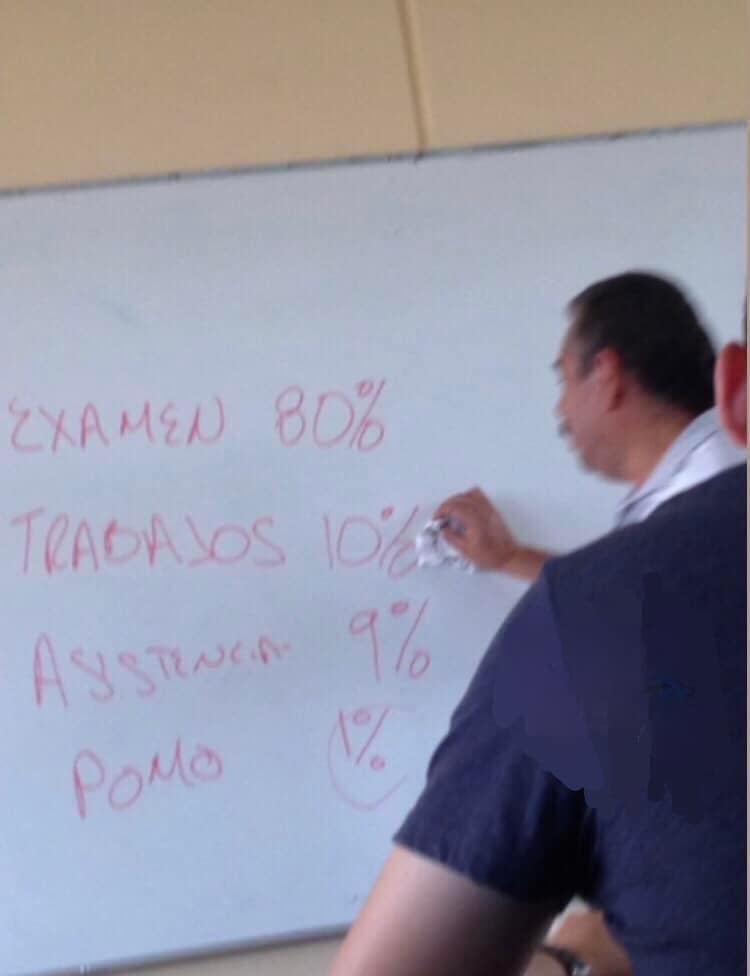 EXAMEN 80%
TRABAJOS 10%
ASISTENCIA 9%
POMO 1%